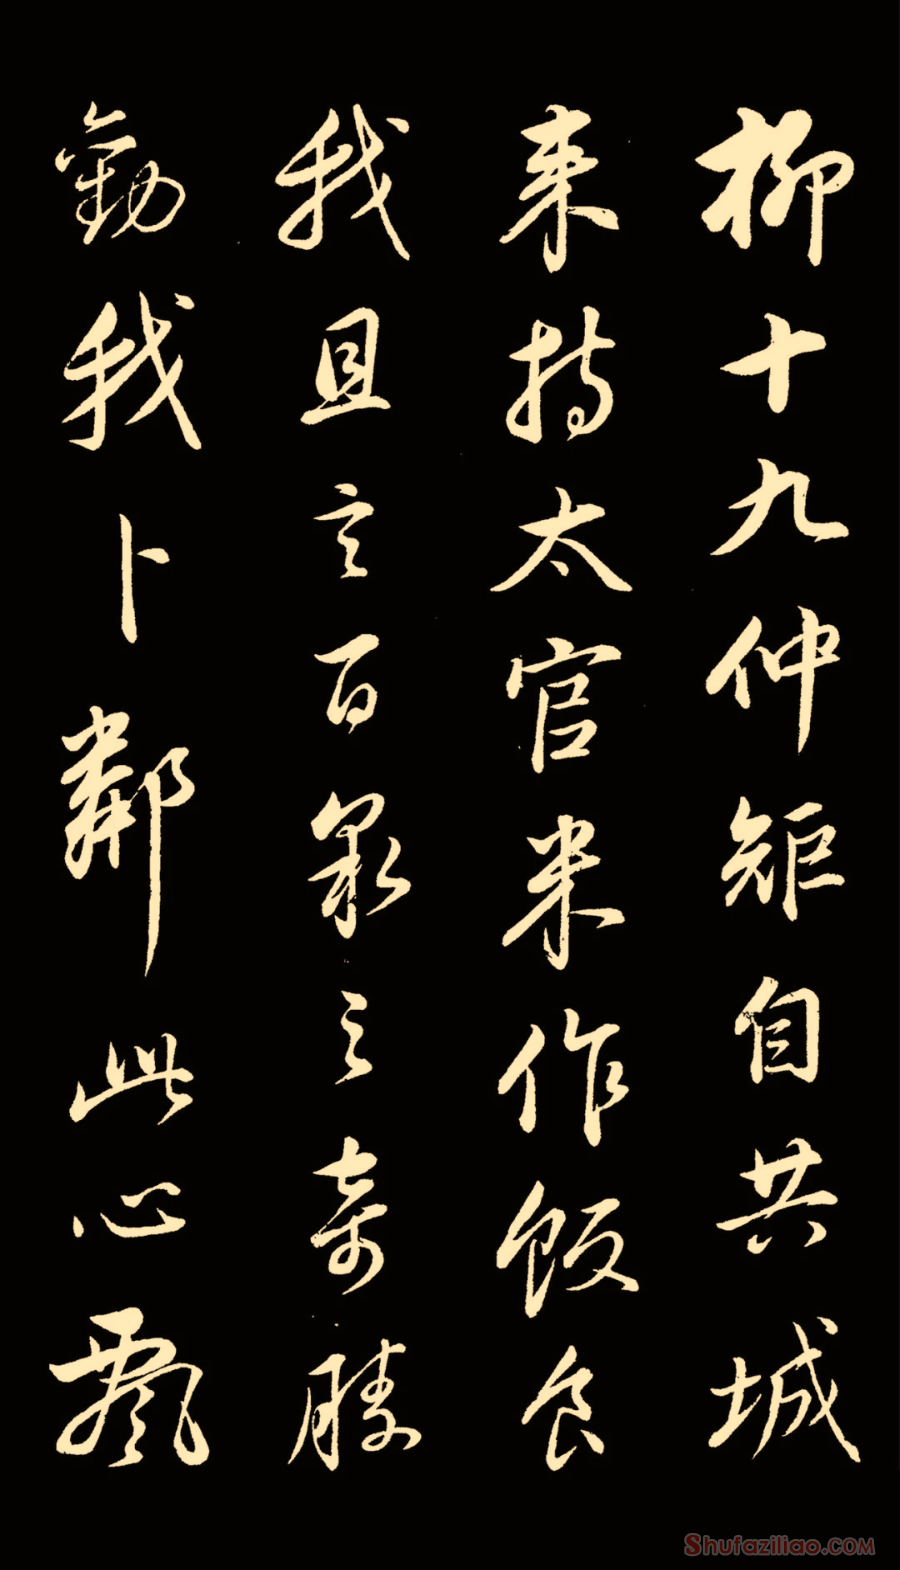 柳十九仲矩自共城
来持太官米作飯食
我且言百泉之奇勝
勸我卜鄰此心飄
Shufaziliao.com